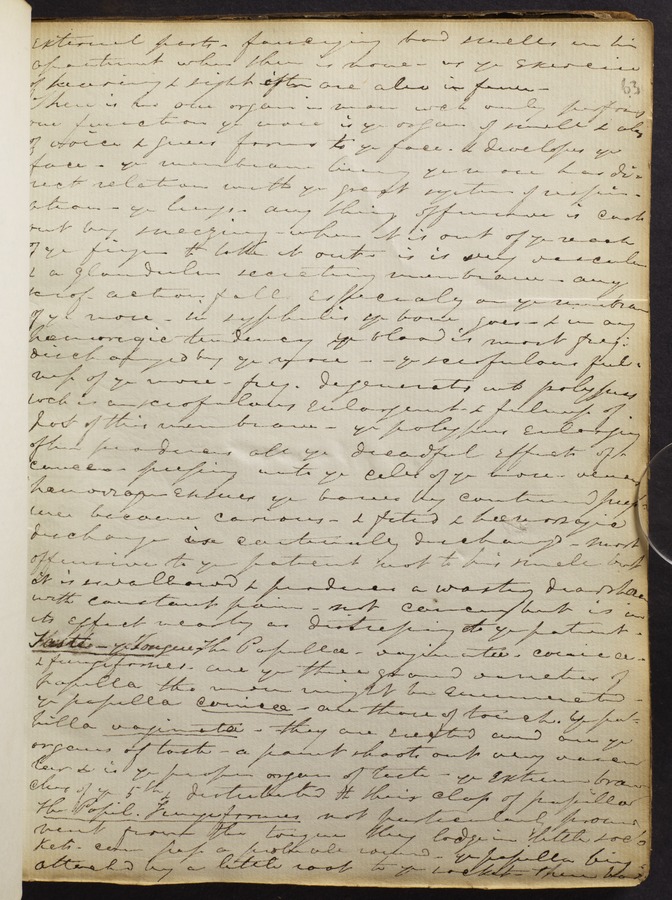 external parts - fancying bad smells in his
apartment when there is none - as ye exercise
of hearing & sight often are also in fever -
63
There is no one organ in man wch only performs
one function ye nose is ye organ of smell & also
of voice & gives form to ye face. & developes ye
face - ye membrane lining ye nose has di-
rect relation with ye great system of respir-
ation - ye lungs - any thing offensive is cast
out by sneezing - when it is out of ye reach
of ye finger to take it out - is very vascular
& a glandular secreting membrane - any
scrof. action, fall especialy on ye membran
of ye nose - in syphilis ye bone goes - & in any
hemoregic tendency ye blood is most freq.
discharged by ye nose - - ye scrofulous ful-
ness of ye nose - freq. degenerates into polypus
wch is an scrofulous enlargement & fulness of
part of this membrane - ye polypus enlarging
often produces all ye dreadful effects of a
cancer - pressing into ye cells of ye nose -
hemorage ensues ye bones by continued press
ure become carious - & fetid & hemoragic
discharge is continually discharged - most
offensive to ye patient not to his smell but
it is swallowed & produces a wasting diarrhaea
with constant pain - not cancer, but is in
its effect nearly as distressing to ye patient -
Taste - ye Tongue, The Papillae - vaginatae - conicae -
& fungiformes. are ye three grand varieties of
papilla tho more might be enumerated -
ye papilla conicae - are those of touch. Ye pa-
pilla vaginatae - they are erected and are ye
organs of taste - a point shoots out very vascu
lar & is ye proper organ of taste - ye extreme bran
ches of ye 5th, distributed to this class of papillae
The Papil. Fungiformes, not particularly promi
nent from the tongue they lodge in little soc
kets - can pass a probe all round - ye papilla being
attached by a little root to ye socket - these